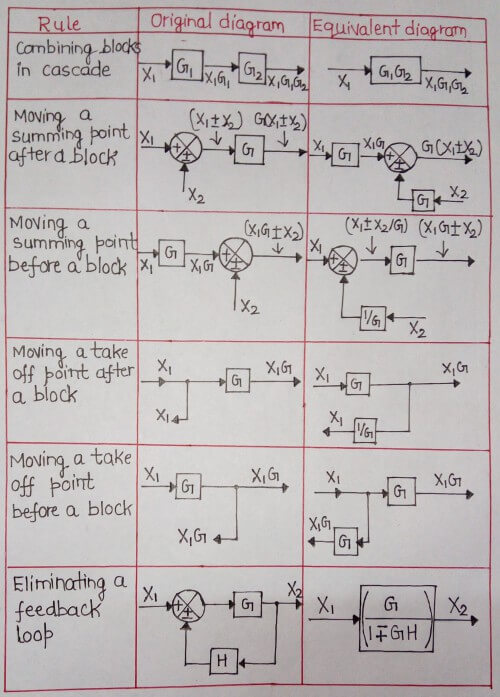 Rule Original diagram Equivalent diagram
Combining blocks
in cascade
X₁ G₁ X₁G₁ G₂ X₁G₁G₂
X₁ G₁G₂ X₁G₁G₂
Moving a
summing point
after a block
X₁ + ± (X₁±X₂) G G(X₁±X₂)
X₂
X₁ G X₁G + ± G(X₁±X₂)
G X₂
Moving a
summing point
before a block
X₁ G X₁G + ± (X₁G±X₂)
X₂
X₁ + ± (X₁±X₂/G) G (X₁G±X₂)
1/G X₂
Moving a take
off point after
a block
X₁ G X₁G
X₁
X₁ G X₁G
X₁ 1/G
Moving a take
off point
before a block
X₁ G X₁G
X₁G
X₁ G X₁G
X₁G G
Eliminating a
feedback
loop
X₁ + ± G X₂
H
X₁ (G / 1∓GH) X₂